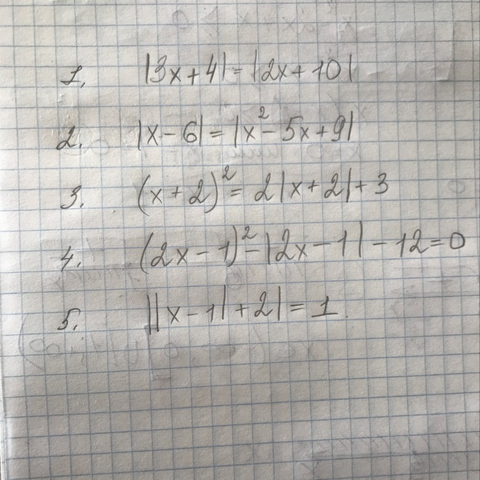 1. |3x+4|=|2x+10|
2. |x-6|=|x²-5x+9|
3. (x+2)²=2|x+2|+3
4. (2x-1)²-|2x-1|-12=0
5. ||x-1|+2|=1.